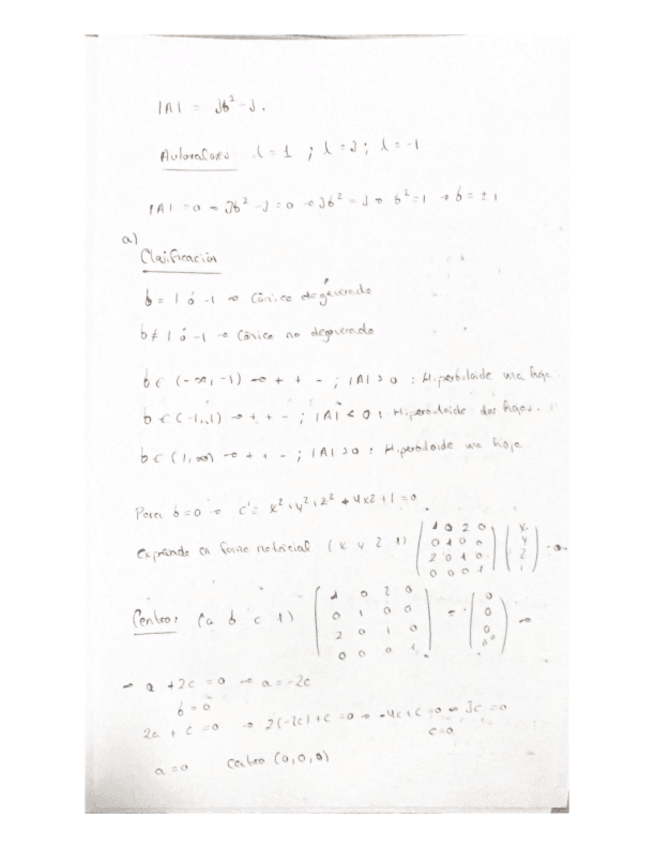 |A| = 3b² - 3.
Autovalores λ = 1 ; λ = 3 ; λ = -1
|A| = 0 → 3b² - 3 = 0 → 3b² = 3 → b² = 1 → b = ± 1
a)
Clasificación
b = 1 ó -1 → Cónica degenerada
b ≠ 1 ó -1 → Cónica no degenerada
b ∈ (-∞, -1) → + + - ; |A| > 0 : Hiperboloide una hoja
b ∈ (-1, 1) → + + - ; |A| < 0 : Hiperboloide dos hojas.
b ∈ (1, ∞) → + + - ; |A| > 0 : Hiperboloide una hoja
Para b = 0 → C' = x² + y² + z² + 4xz + 1 = 0
Exprando en forma matricial (x y z 1) (1 0 2 0 / 0 1 0 0 / 2 0 1 0 / 0 0 0 1) (x / y / z / 1) = 0
Centro: (a b c 1) (1 0 2 0 / 0 1 0 0 / 2 0 1 0 / 0 0 0 1) = (0 / 0 / 0) →
→ a + 2c = 0 → a = -2c
b = 0
2a + c = 0 → 2(-2c) + c = 0 → -4c + c = 0 → 3c = 0
c = 0
a = 0 Centro (0, 0, 0)